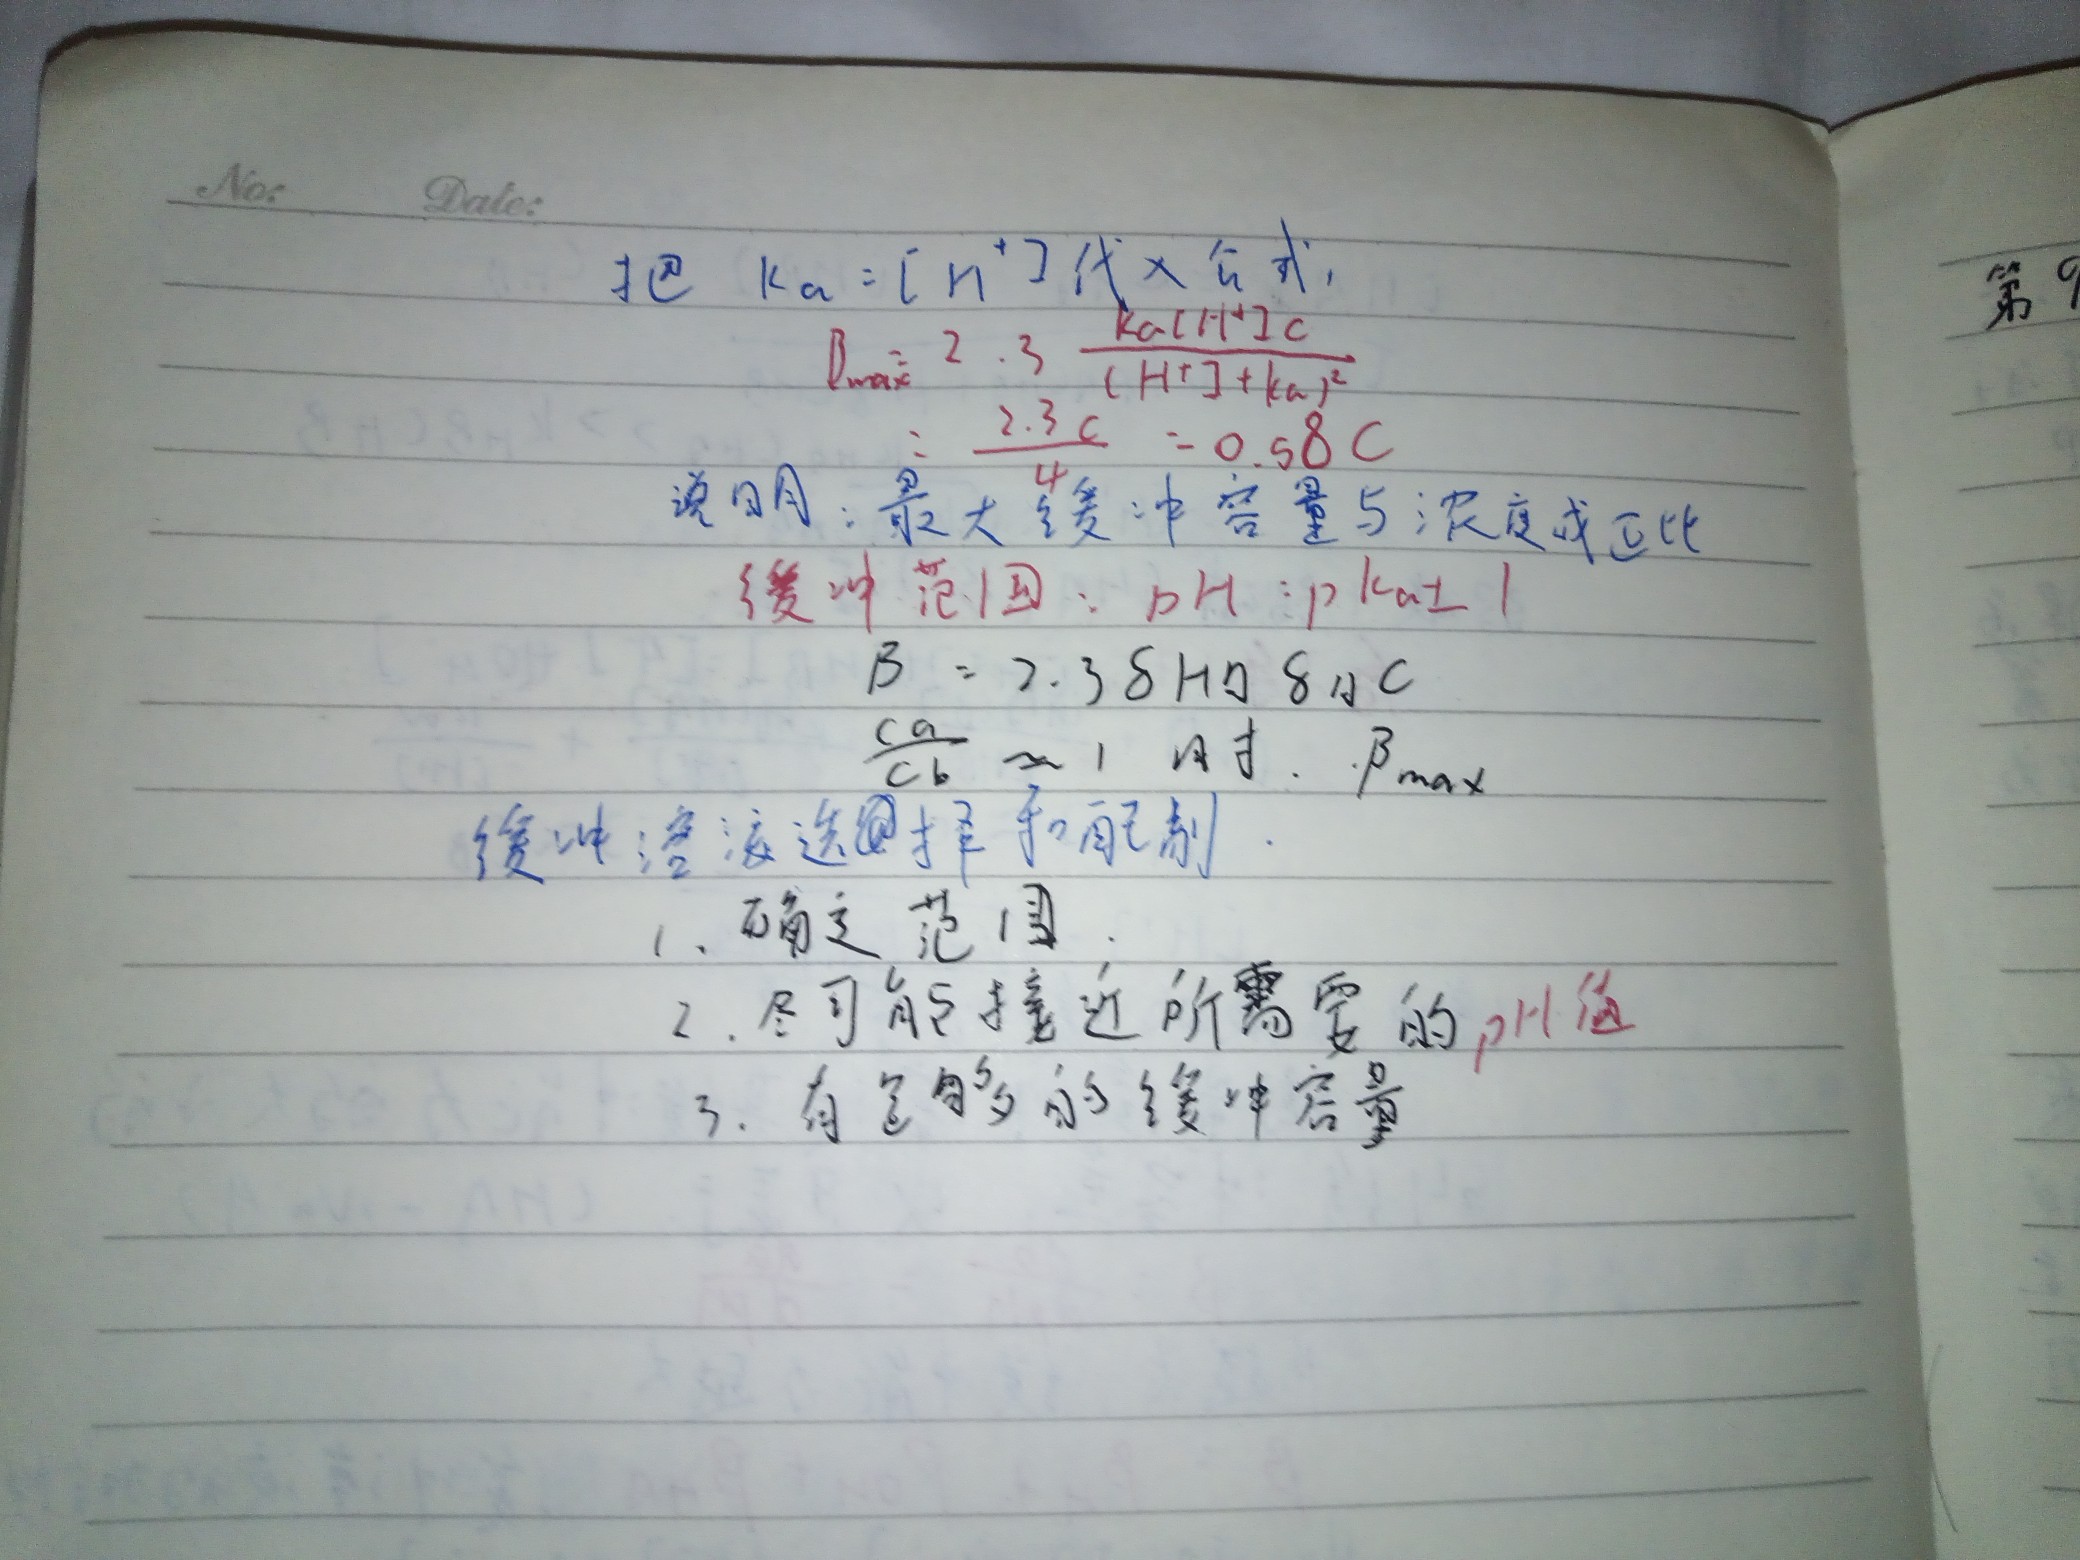 No: Date:
把 Ka=[H⁺]代入公式,
βmax = 2.3 Ka[H⁺]c / ([H⁺]+Ka)²
= 2.3c / 4 = 0.58C
说明:最大缓冲容量与浓度成正比
缓冲范围:pH:pKa±1
β = 2.3δHAδAC
ca/cb ≈ 1 时. βmax
缓冲溶液选择和配制.
1、确定范围.
2.尽可能接近所需要的pH值
3.有足够的缓冲容量
第9